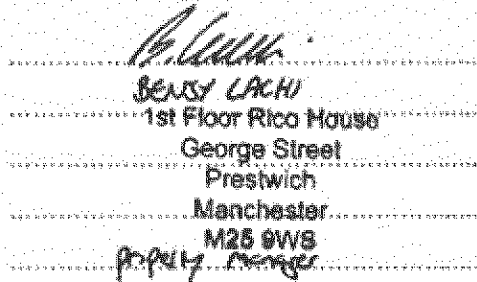 BENSY LACHI
1st Floor Rico House
George Street
Prestwich
Manchester
M25 9WS
property manager